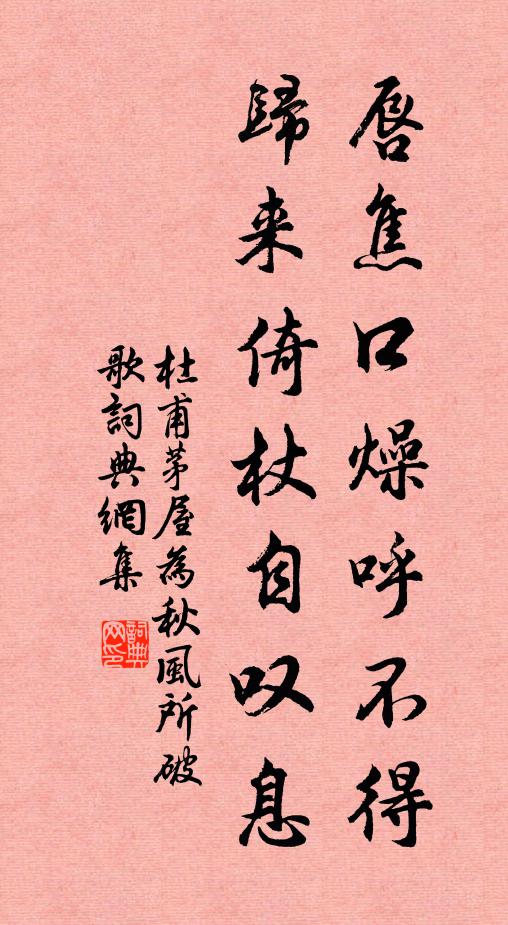 唇焦口燥呼不得
歸来倚杖自叹息
杜甫茅屋為秋風所破
歌詞典網集
詞典网印